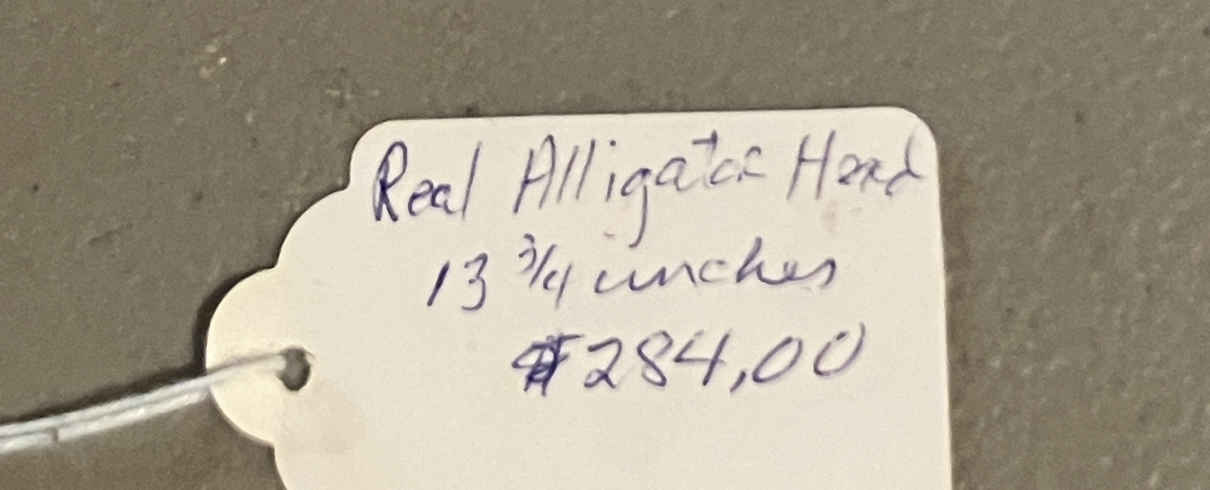 Real Alligator Head
13 3/4 inches
$284,00